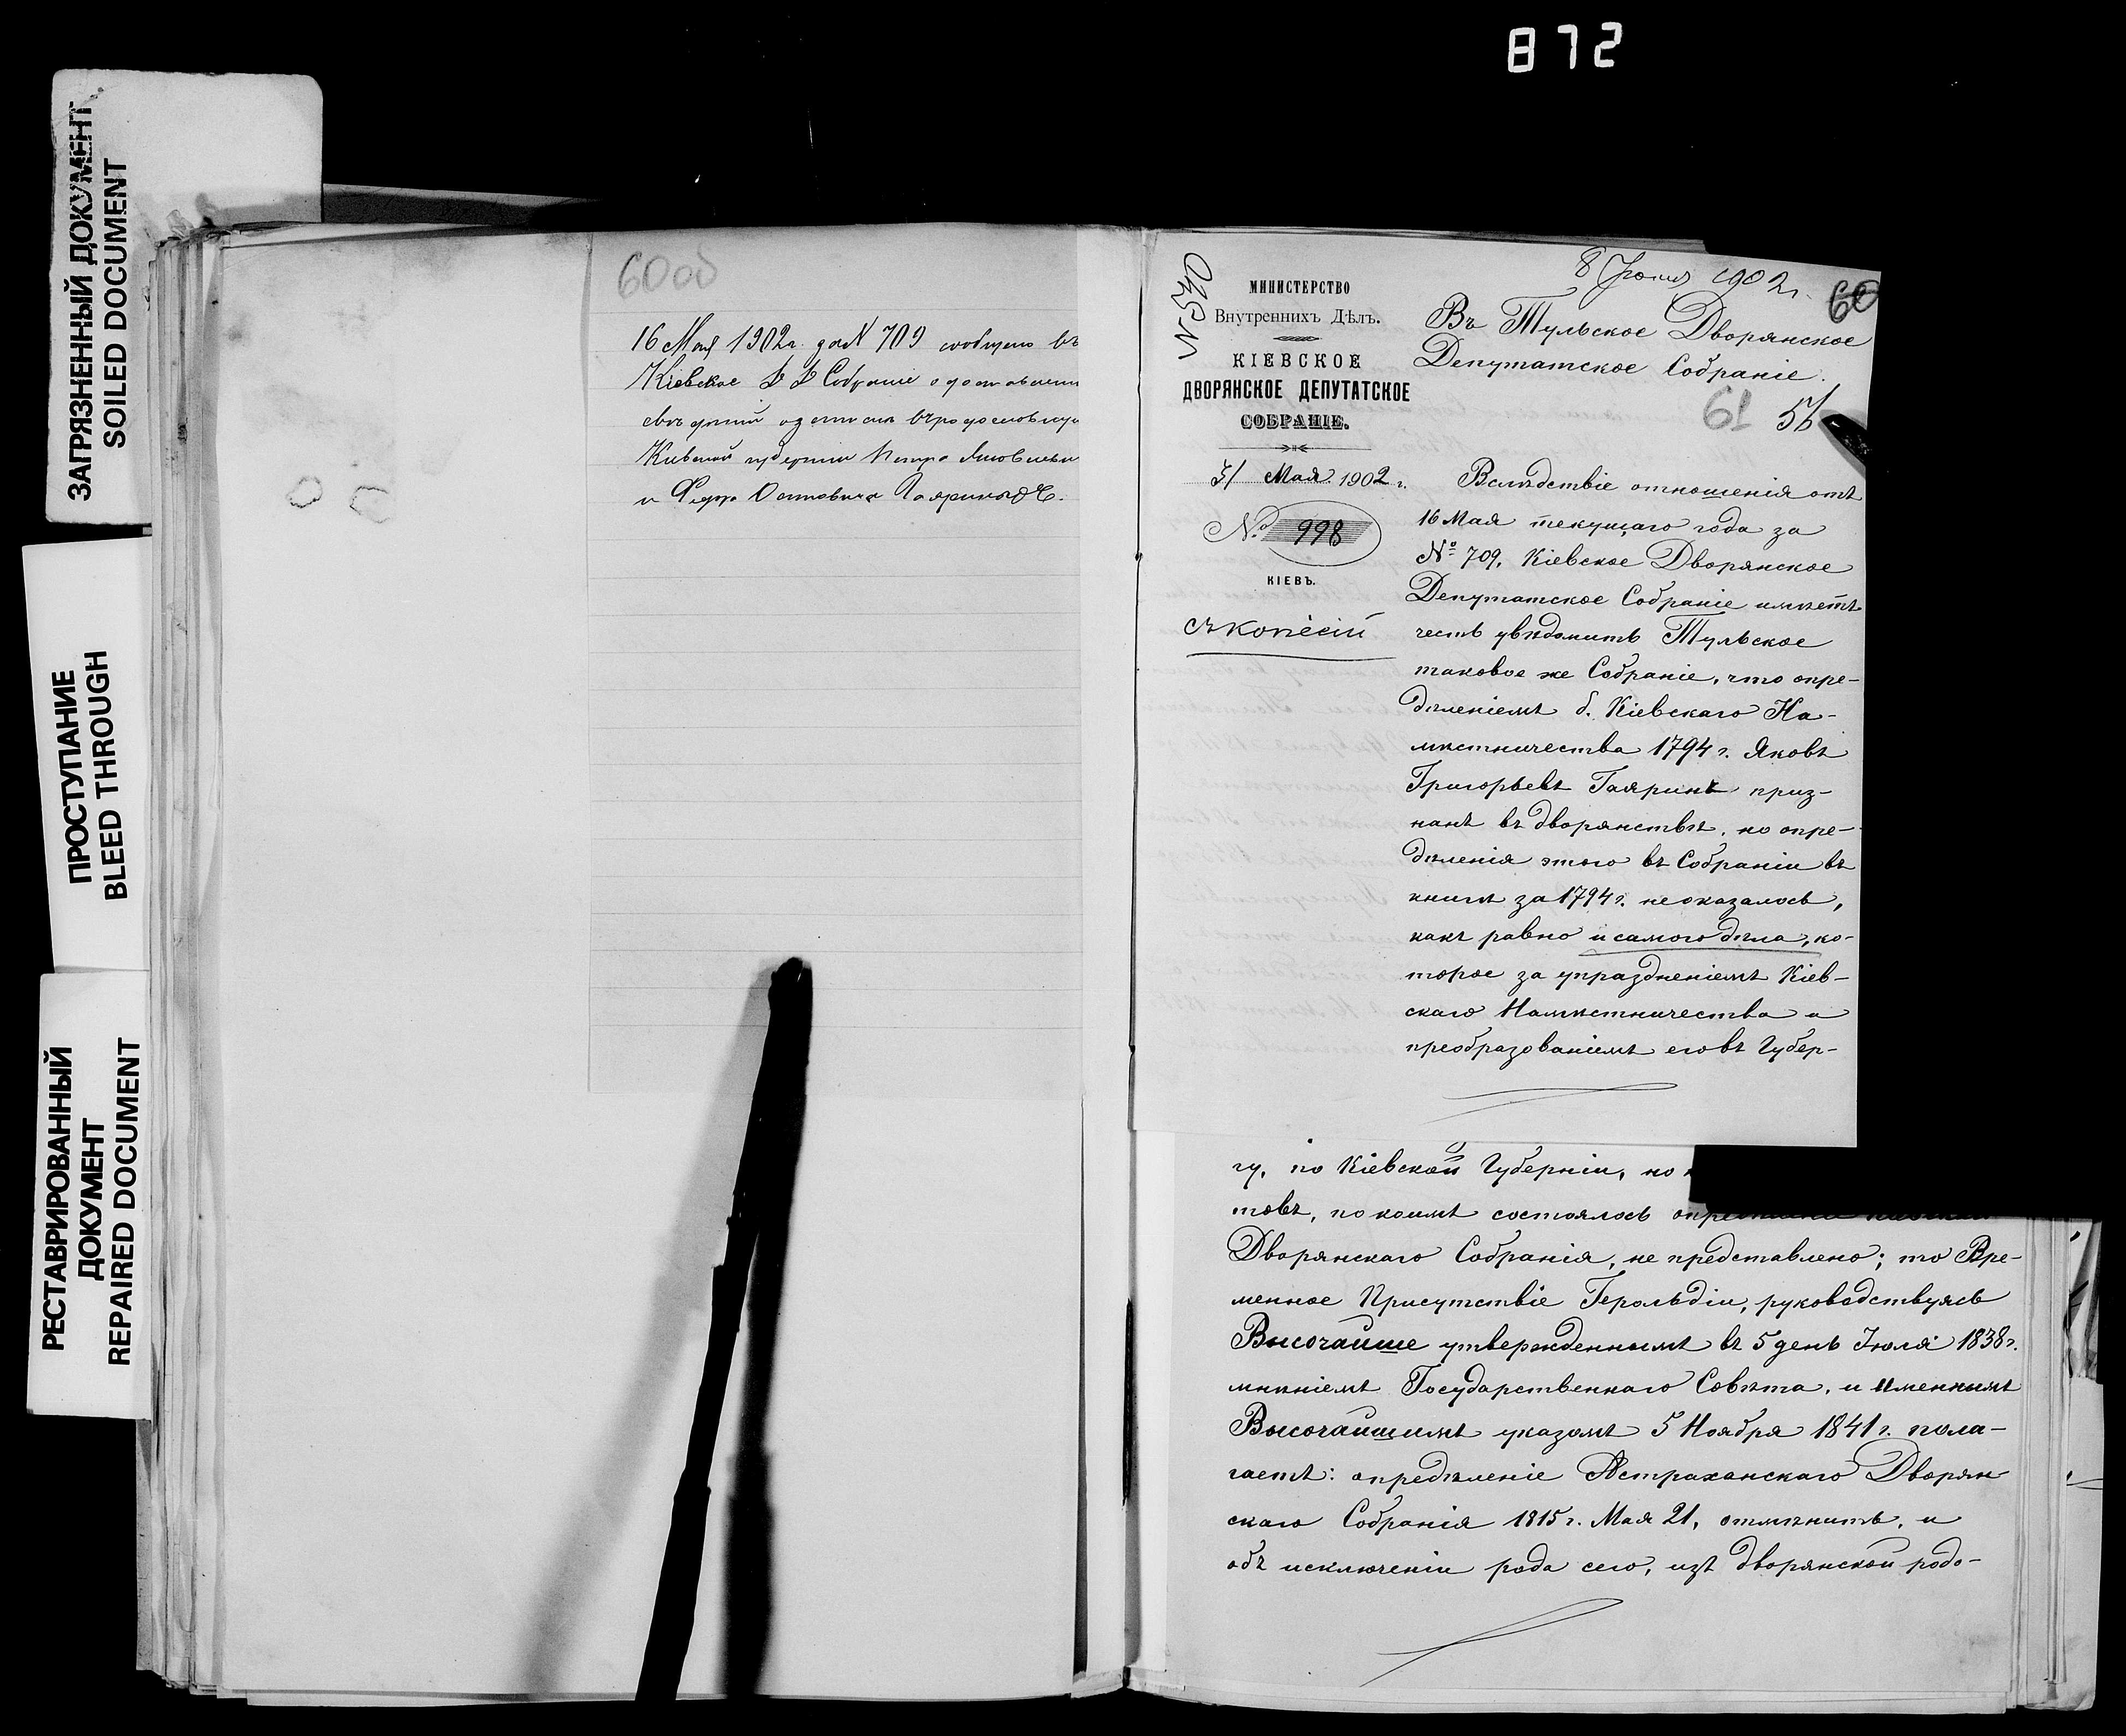 872
ЗАГРЯЗНЕННЫЙ ДОКУМЕНТ
SOILED DOCUMENT
ПРОСТУПАНИЕ
BLEED THROUGH
РЕСТАВРИРОВАННЫЙ
ДОКУМЕНТ
REPAIRED DOCUMENT
60об
16 Мая 1902г. за N 709 сообщено въ
Кіевское Д Д Собраніе о доставленіи
Кіевской губерніи Петра Яковлева
и
№ 540
МИНИСТЕРСТВО
Внутреннихъ Дѣлъ.
КІЕВСКОЕ
ДВОРЯНСКОЕ ДЕПУТАТСКОЕ
СОБРАНІЕ.
31 Мая 1902 г.
№ 998
КІЕВЪ.
съ копіей
8 Іюня 1902 г.
60
Въ Тульское Дворянское
Депутатское Собраніе.
61 56
Вслѣдствіе отношенія отъ
16 Мая текущаго года за
№ 709, Кіевское Дворянское
Депутатское Собраніе имѣетъ
честь увѣдомить Тульское
таковое же Собраніе, что опре-
дѣленіемъ б. Кіевскаго На-
мѣстничества 1794 г. Яковъ
Григорьевъ Гаяринъ приз-
нанъ въ дворянствѣ, но опре-
дѣленія этого въ Собраніи въ
книгѣ за 1794 г. не оказалось,
какъ равно и самого дѣла, ко-
торое за упраздненіемъ Кіев-
скаго Намѣстничества и
преобразованіемъ его въ Губер-
гу, по Кіевской Губерніи, но
товъ, по коимъ состоялось
Дворянскаго Собранія, не представлено; то Вре-
менное Присутствіе Герольдіи, руководствуясь
Высочайше утвержденнымъ въ 5 день Іюля 1838 г.
мнѣніемъ Государственнаго Совѣта, и Именнымъ
Высочайшимъ указомъ 5 Ноября 1841 г. пола-
гаетъ: опредѣленіе Астраханскаго Дворян-
скаго Собранія 1815 г. Мая 21, отмѣнить, и
объ исключеніи рода сего, изъ дворянской родо-